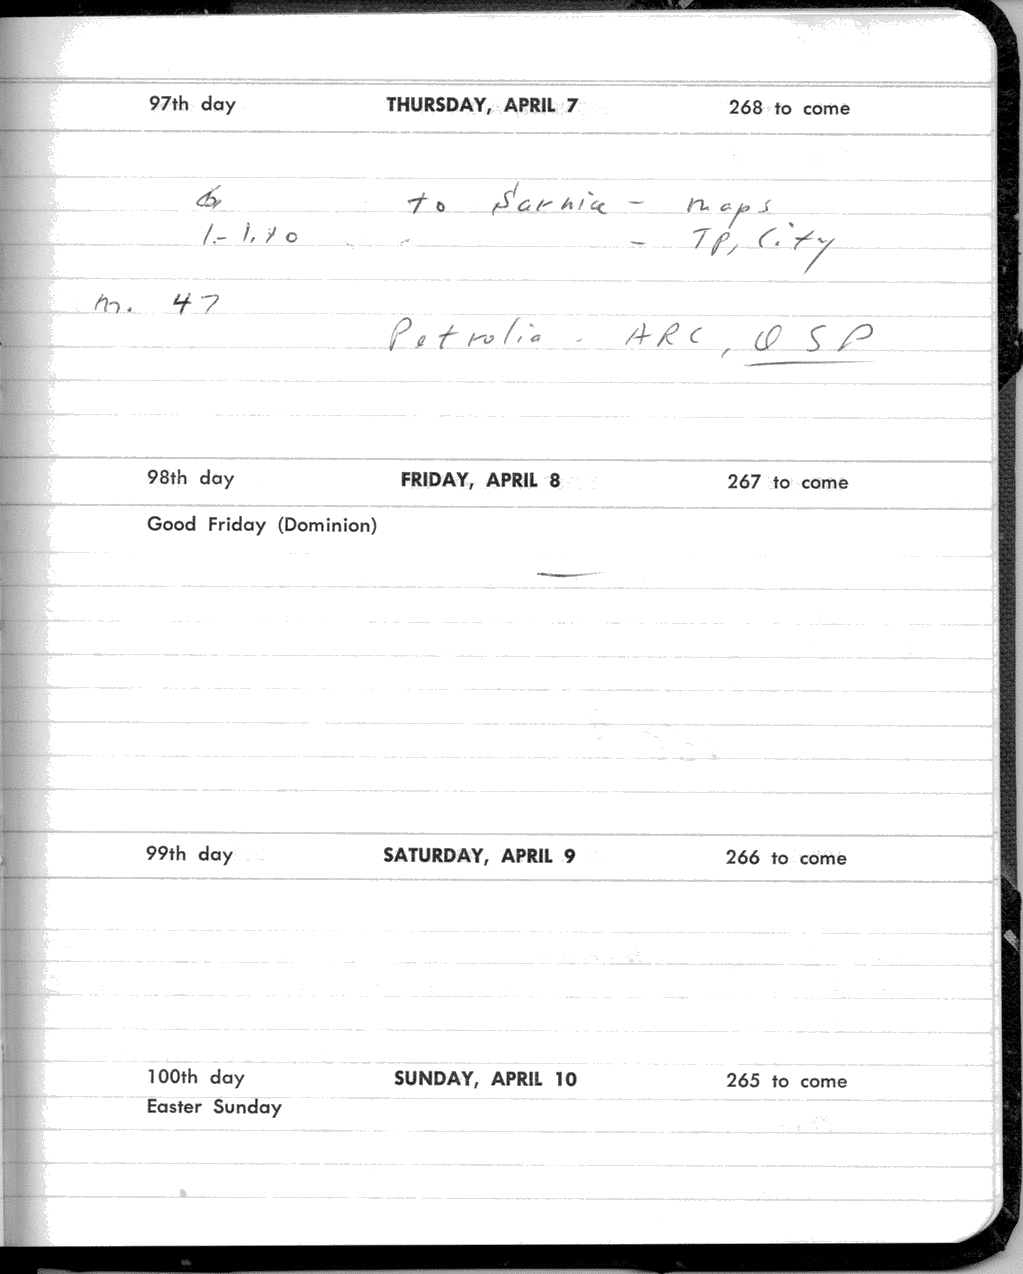 97th day THURSDAY, APRIL 7 268 to come
6 to Sarnia - maps
1.- 1.10 - TP, City
m. 47
Petrolia - ARC, OSP
98th day FRIDAY, APRIL 8 267 to come
Good Friday (Dominion)
99th day SATURDAY, APRIL 9 266 to come
100th day SUNDAY, APRIL 10 265 to come
Easter Sunday